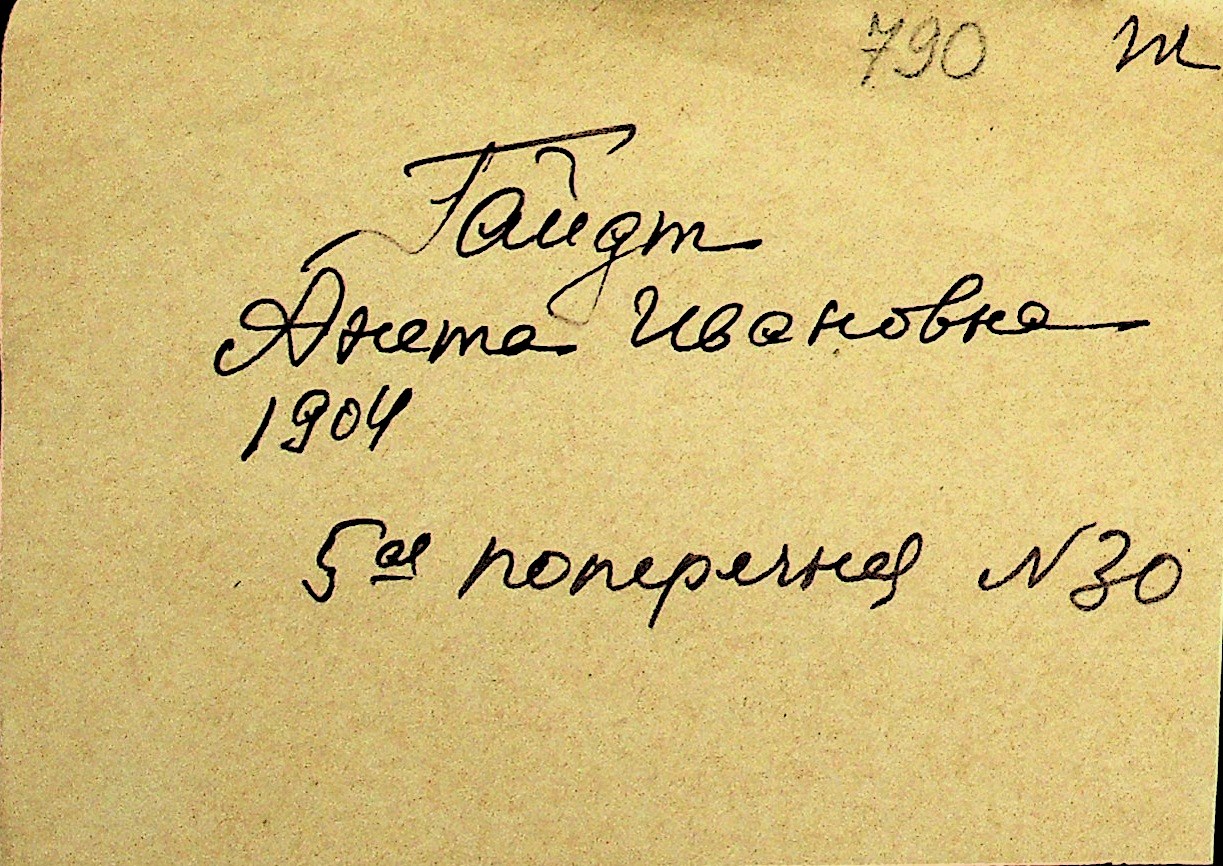 790 т
Гайдт
Анета Ивановна
1904
5ая поперечная N 30